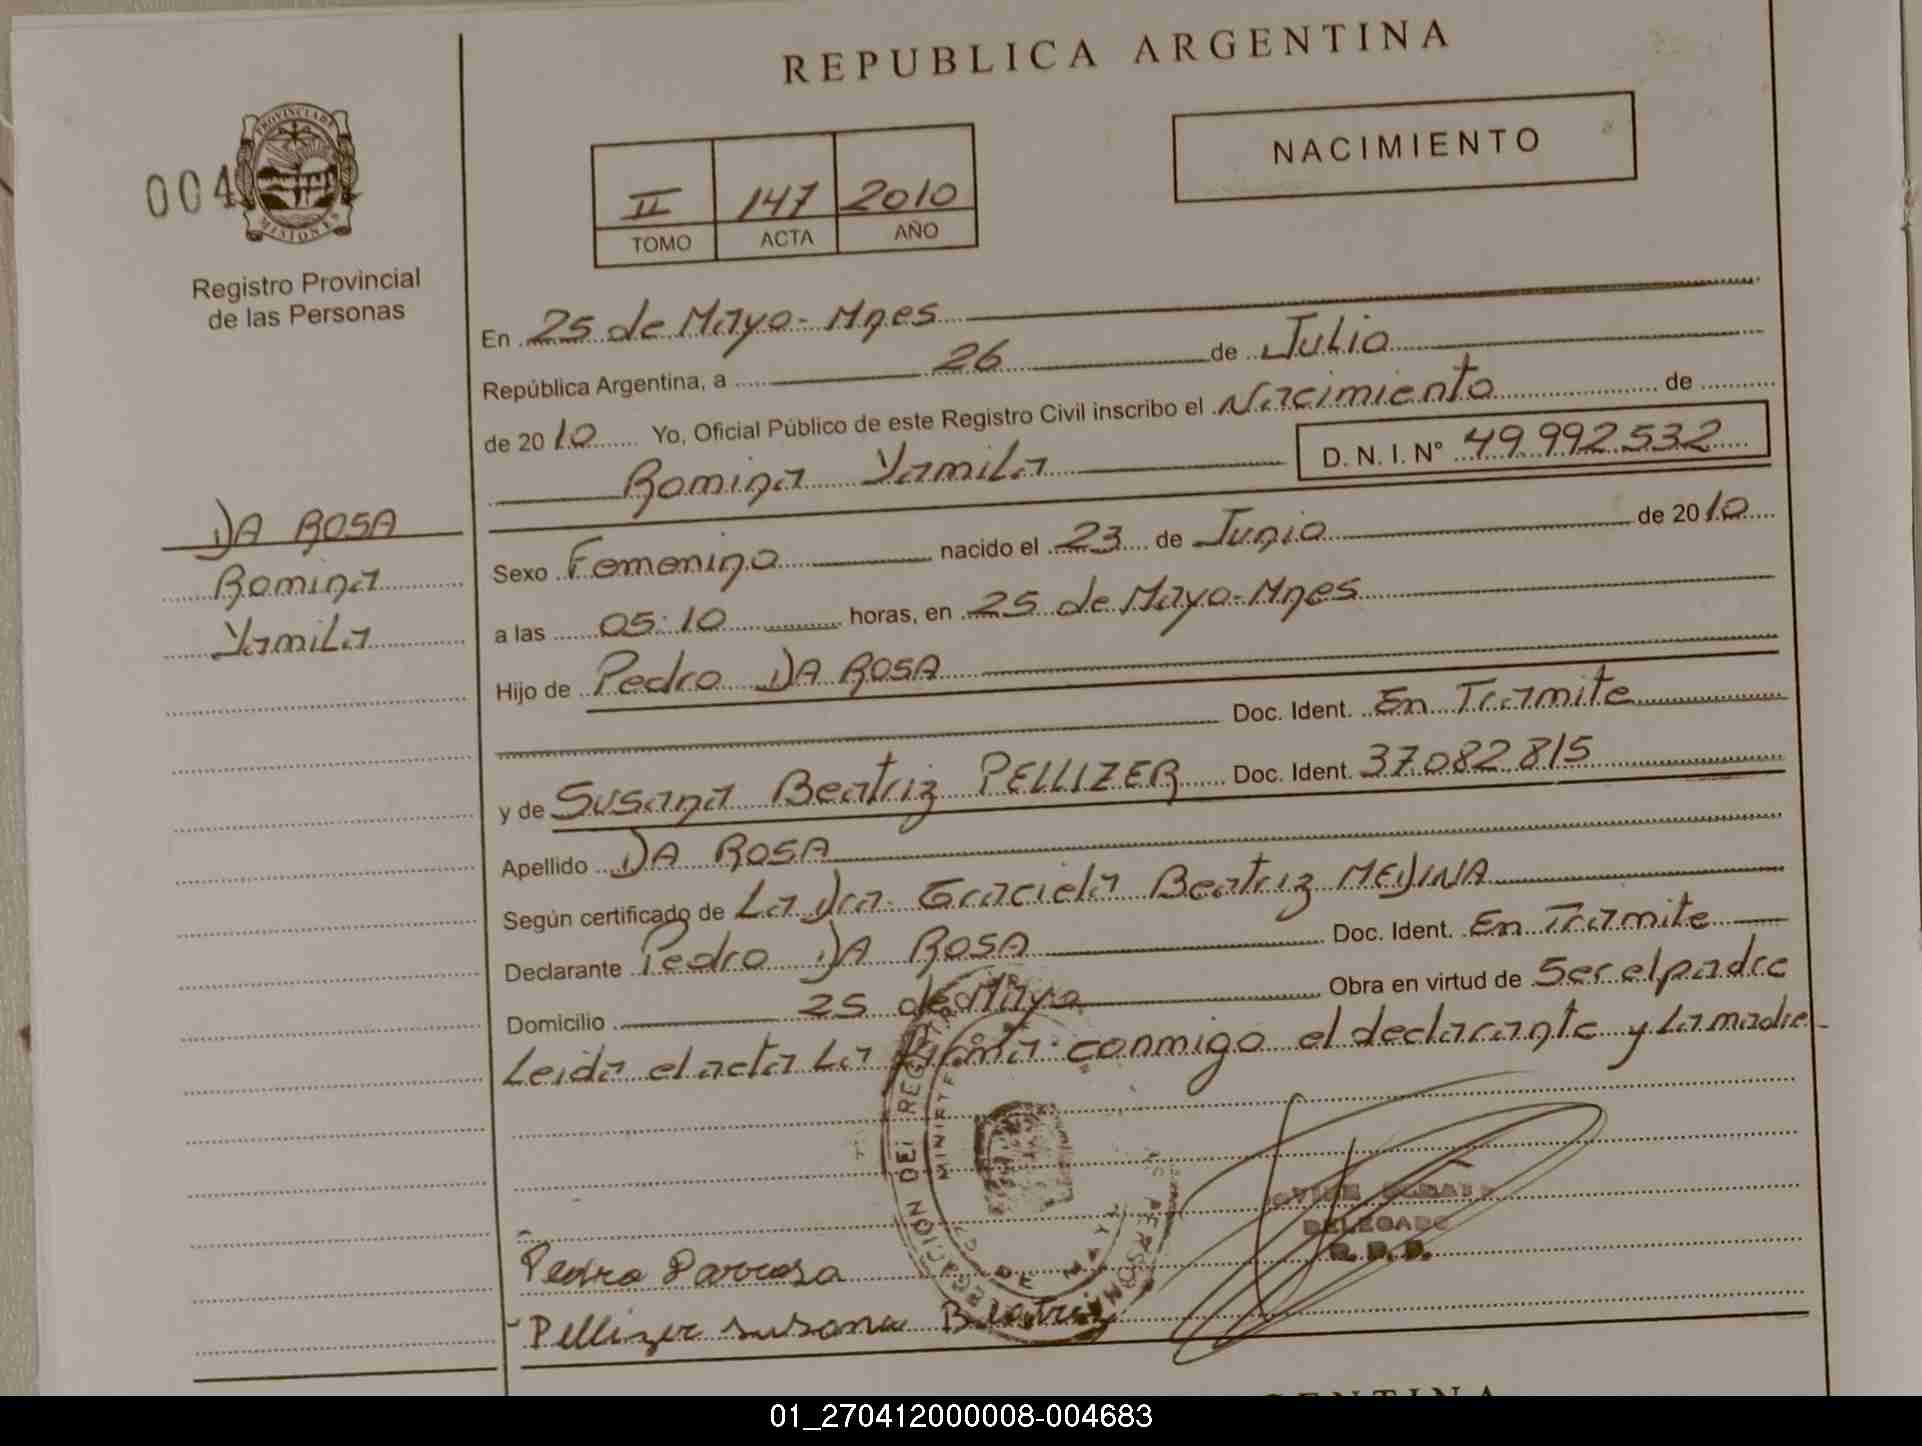 REPUBLICA ARGENTINA
NACIMIENTO
004
PROVINCIA DE
MISIONES
Registro Provincial
de las Personas
II 147 2010
TOMO ACTA AÑO
En 25 de Mayo - Mnes
República Argentina, a 26 de Julio
de 2010 Yo, Oficial Público de este Registro Civil inscribo el Nacimiento de
Romina Yamila D. N. I. Nº 49.992.532
DA ROSA
Romina
Yamila
Sexo Femenino nacido el 23 de Junio de 2010
a las 05:10 horas, en 25 de Mayo - Mnes
Hijo de Pedro DA ROSA
Doc. Ident. En Tramite
y de Susana Beatriz PELLIZER Doc. Ident. 37.082.815
Apellido DA ROSA
Según certificado de La Dra. Graciela Beatriz MEDINA
Declarante Pedro DA ROSA Doc. Ident. En Tramite
Domicilio 25 de Mayo Obra en virtud de Ser el padre
Leida el acta La firma conmigo el declarante y La madre
DELEGADO
R. P. P.
Pedro Darrosa
Pellizer susana Beatriz
01_270412000008-004683